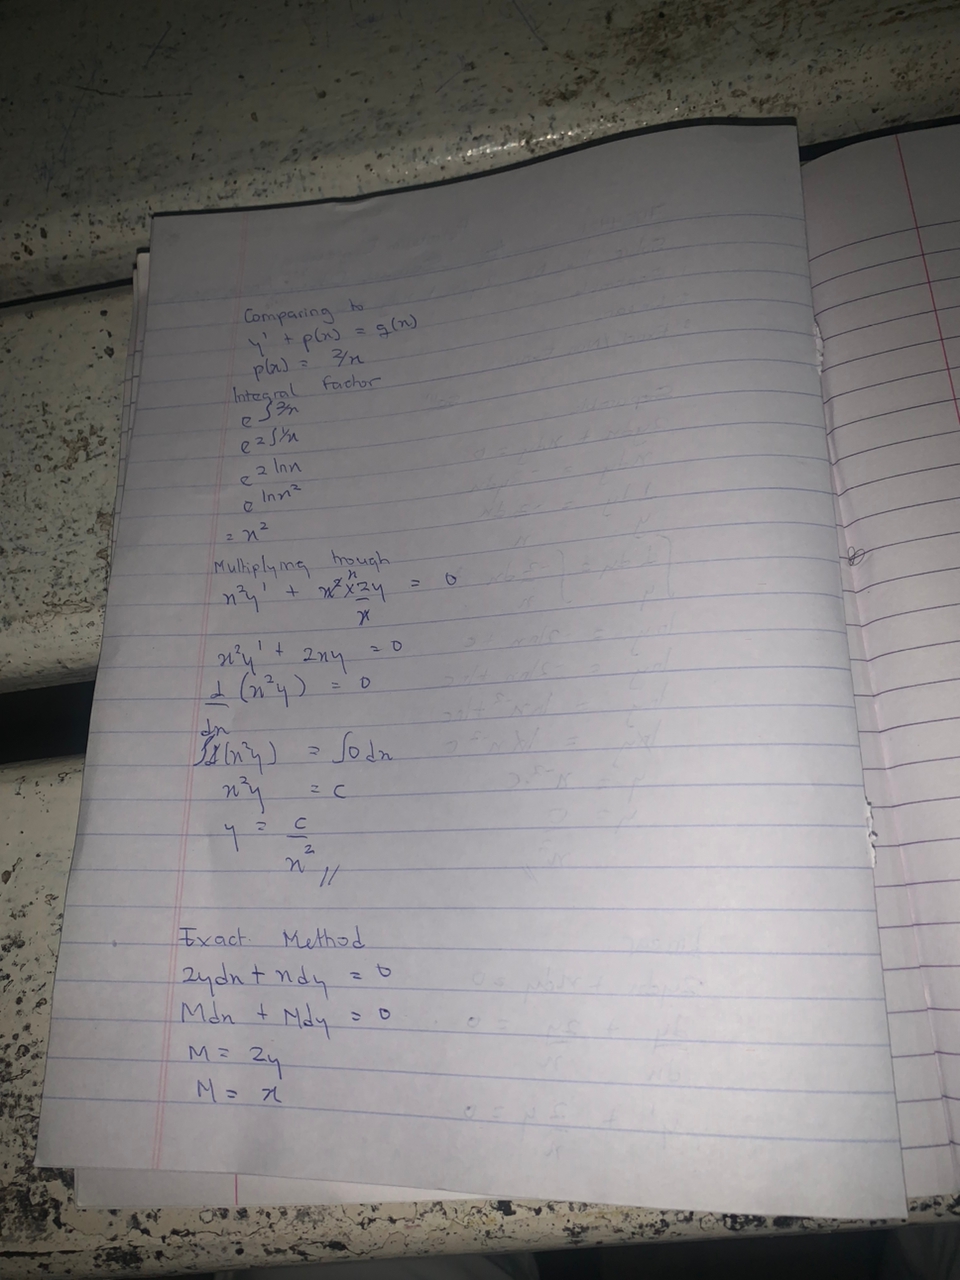 Comparing to
y' + p(x) = q(x)
p(x) = 2/x
Integral factor
e ∫ 2/x
e 2 ∫ 1/x
e 2 ln x
e ln x²
= x²
Multiplying trough
x²y' + x² x × 2y / x = 0
x²y' + 2xy = 0
d/dx (x²y) = 0
∫ d (x²y) = ∫ 0 dx
x²y = c
y = c / x² //
Exact Method
2ydx + xdy = 0
Mdx + Ndy = 0
M = 2y
M = x